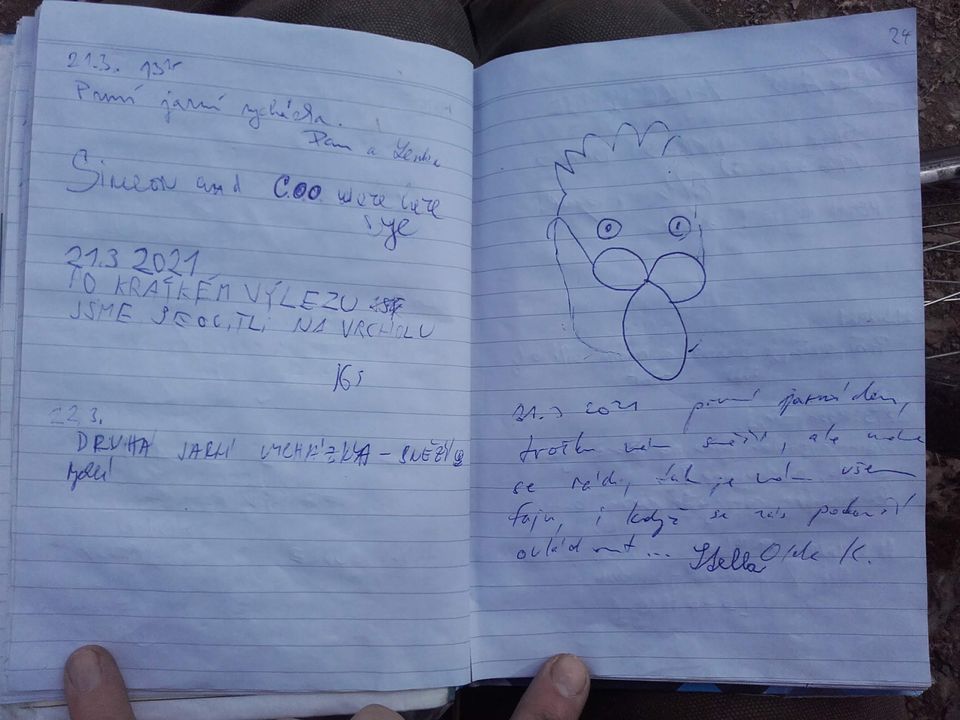 21.3.
První jarní vycházka.
a Lenka
Simeon and Coo were here
21.3 2021
PO KRÁTKÉM VÝLEZU
JSME SE OCITLI NA VRCHOLU
22.3.
DRUHÁ JARNÍ VYCHÁZKA - SNĚŽÍ
24
21.3 2021 první jarní den,
trošku nám sněží, ale máme
se rádi, tak je nám všem
fajn, i když se nás pokouší
ovládnout... Stella K.